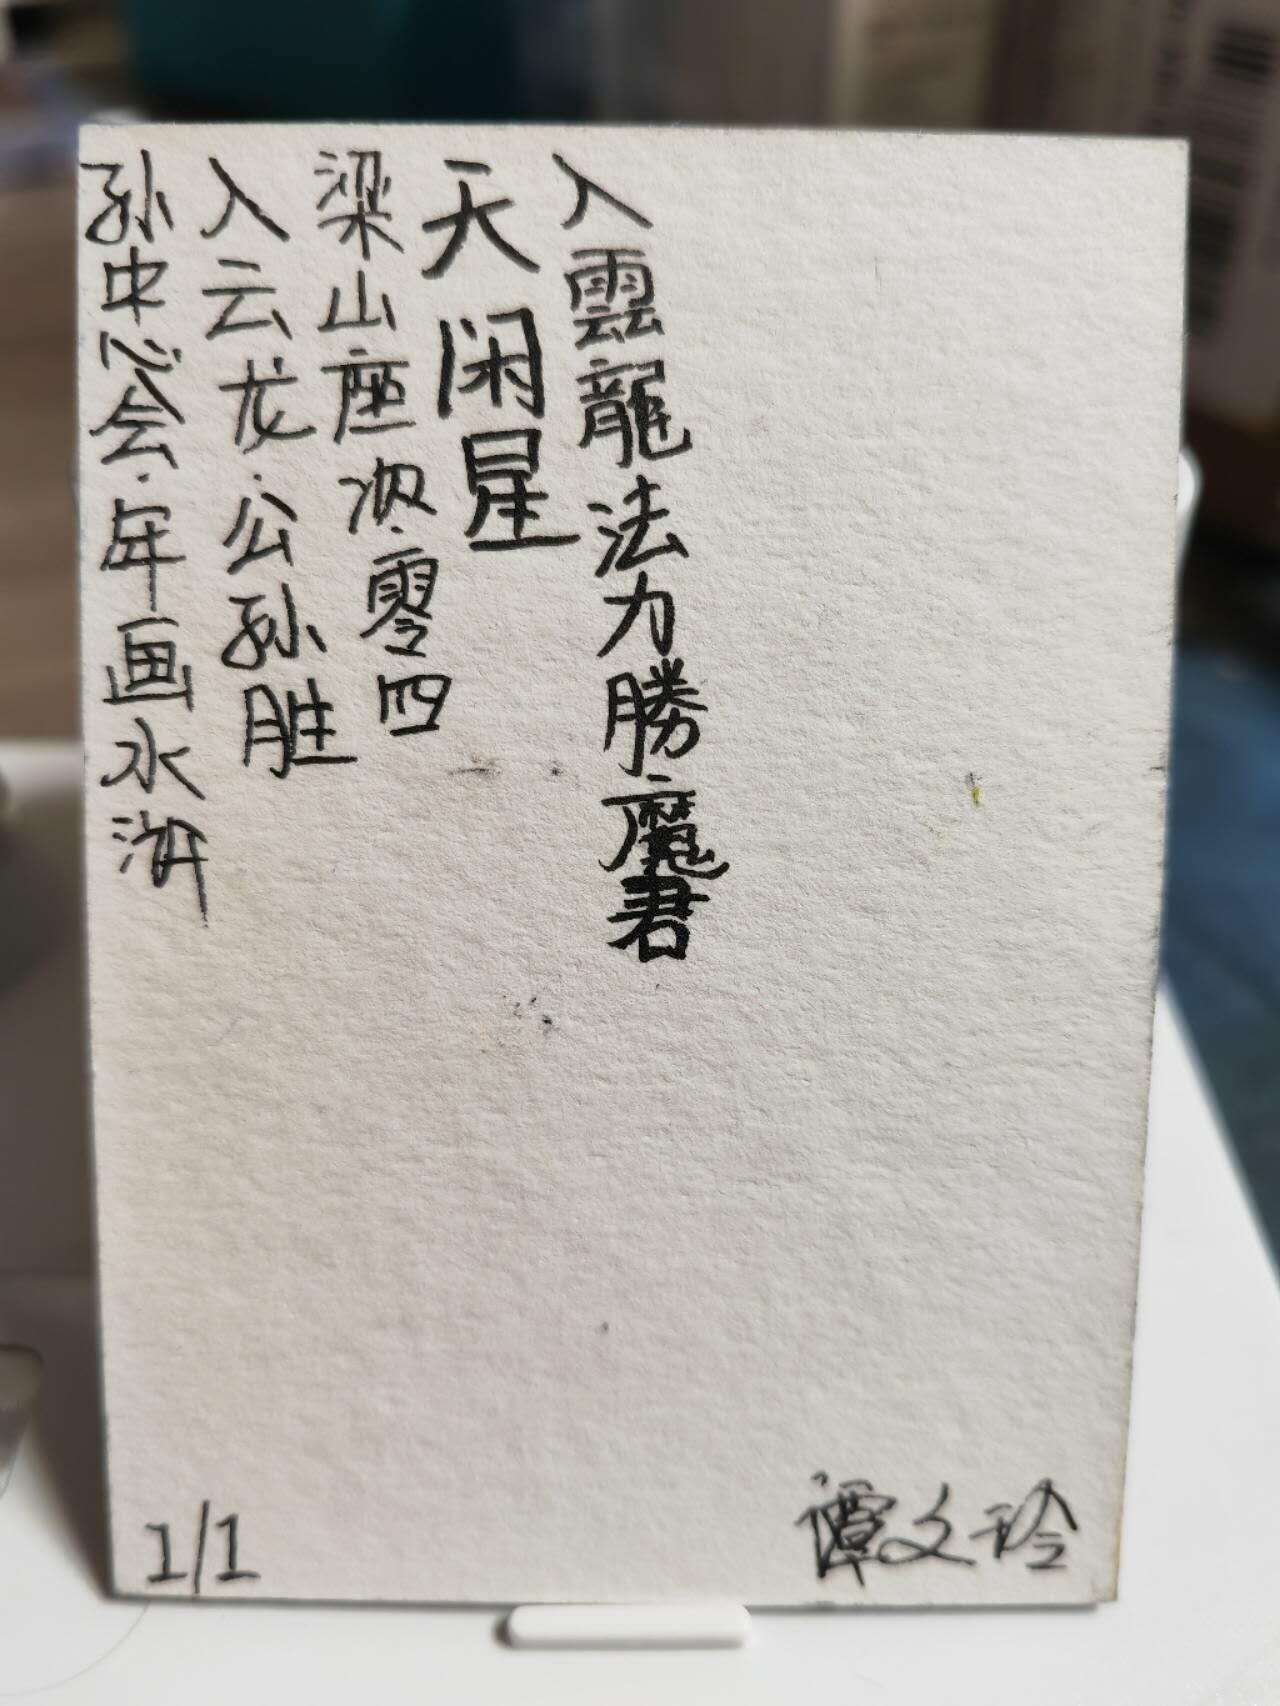 孙中忩会·年画水浒
入云龙·公孙胜
梁山座次·零四
天闲星
入雲龍法力勝魔君
1/1
谭文玲